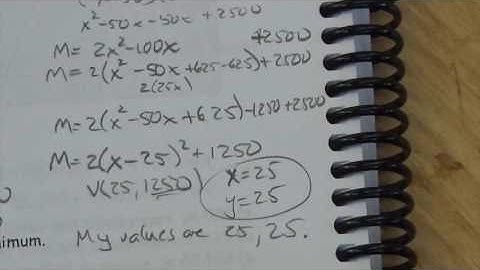 x²-50x-50x+2500
M= 2x²-100x +2500
M= 2(x²-50x+625-625)+2500
2(25x)
M=2(x²-50x+625)-1250+2500
M=2(x-25)²+1250
V(25,1250) x=25
y=25
nimum. My values are 25, 25.